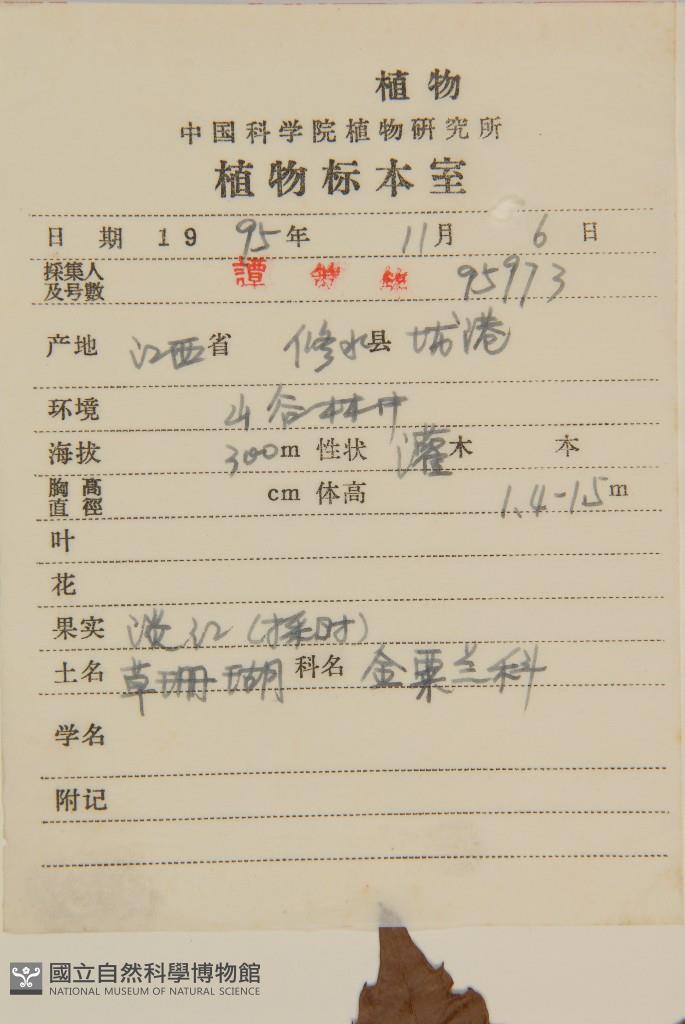 植物
中国科学院植物研究所
植物标本室
日期 19 95 年 11 月 6 日
採集人及号數 譚 95973
产地 江西 省 修水 县 港
环境 山谷林中
海拔 300 m 性状 灌木 本
胸高直徑 cm 体高 1.4-1.5 m
叶
花
果实 淡红(採时)
土名 草珊瑚 科名 金粟兰科
学名
附记
國立自然科學博物館
NATIONAL MUSEUM OF NATURAL SCIENCE